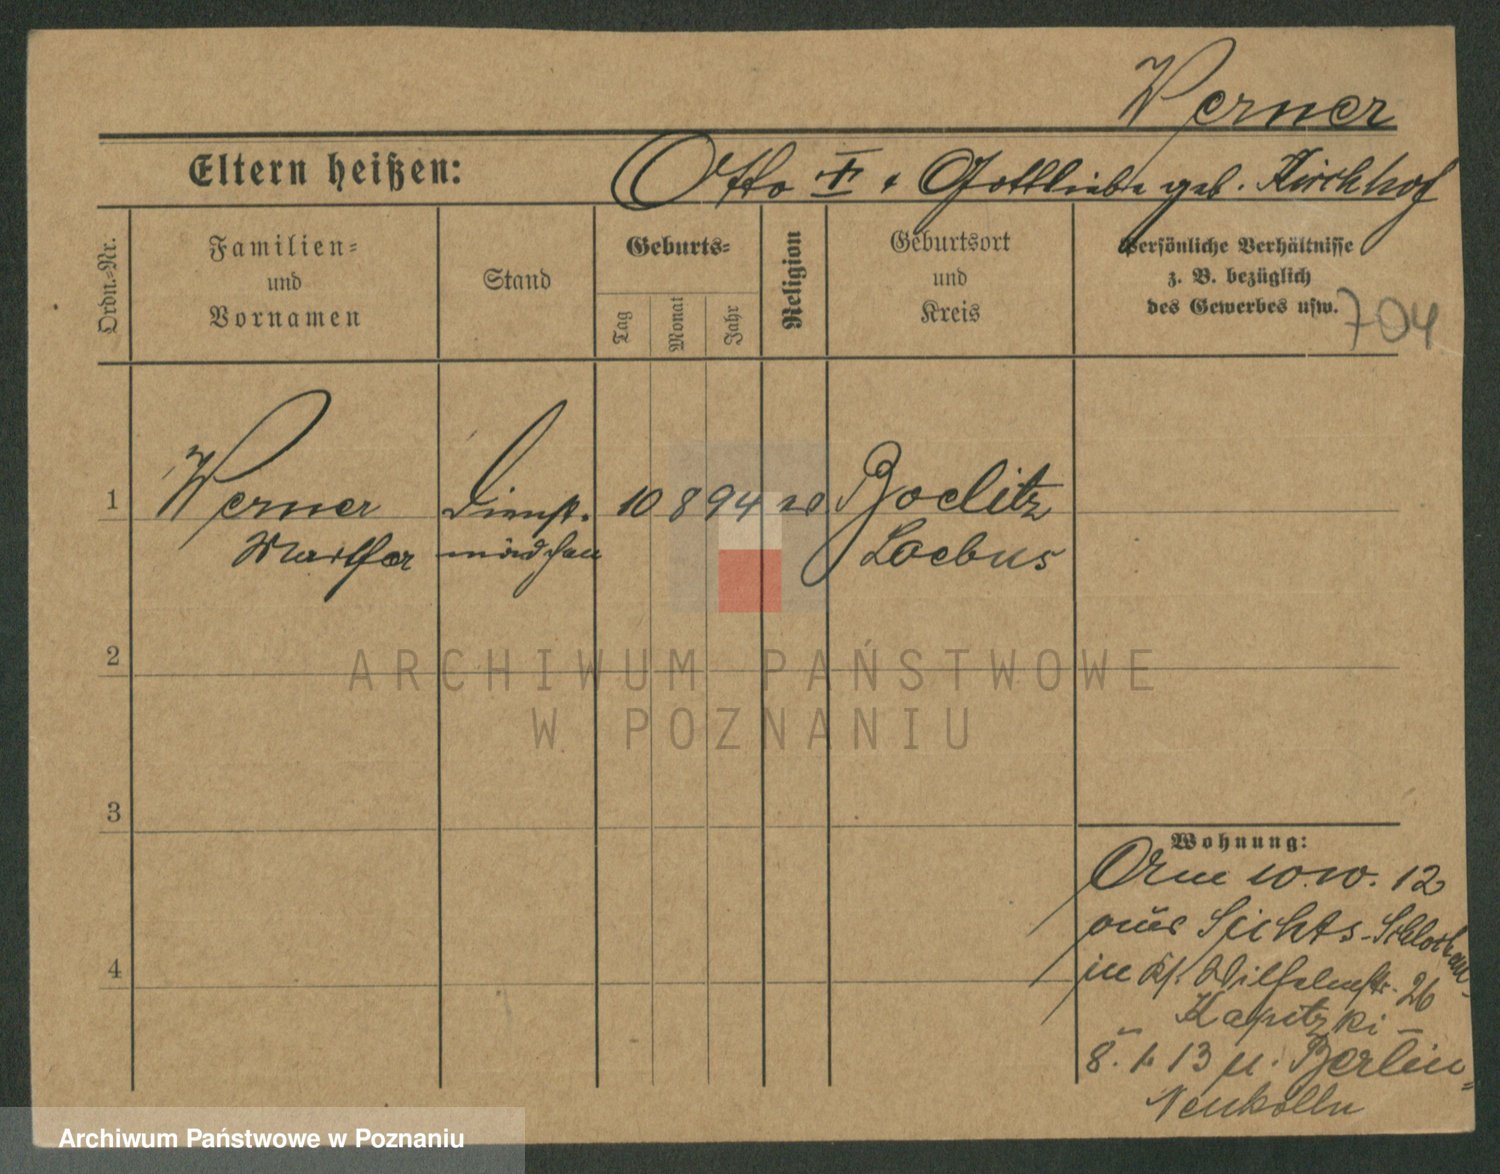 Werner
Eltern heißen: Otto † + Gottliebe geb. Kirchhof
Ordn.-Nr.
Familien-
und
Vornamen
Stand
Geburts-
Tag
Monat
Jahr
Religion
Geburtsort
und
Kreis
Persönliche Verhältnisse
z. B. bezüglich
des Gewerbes usw.
704
1 Werner Dienst- 10 8 94 Boelitz
Martha mädchen Loebus
2
ARCHIWUM PAŃSTWOWE
W POZNANIU
3
Wohnung:
12
aus Sichts-
in Wilhelmstr. 26
Kapitzki
8. 1. 13 n. Berlin-
Neukölln
4
Archiwum Państwowe w Poznaniu